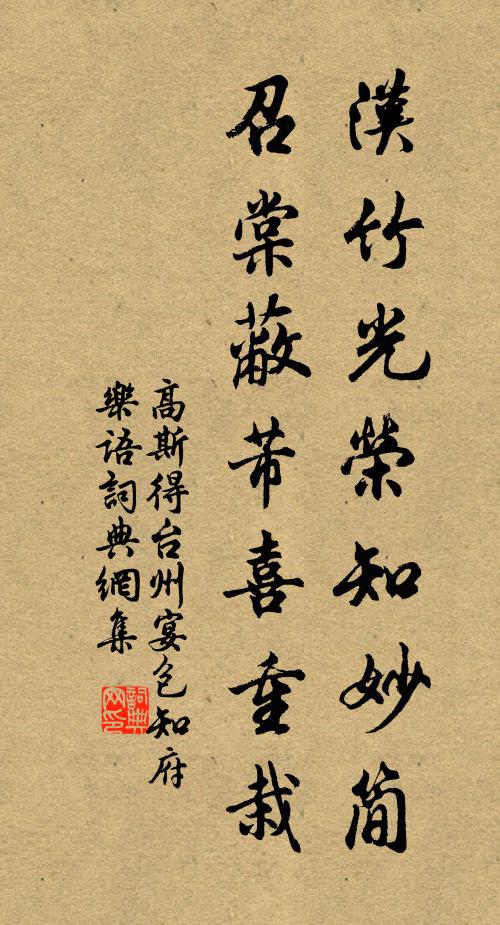 漢竹光榮知妙簡
召棠蔽芾喜重栽
高斯得台州宴包知府
樂語詞典網集
詞典网印